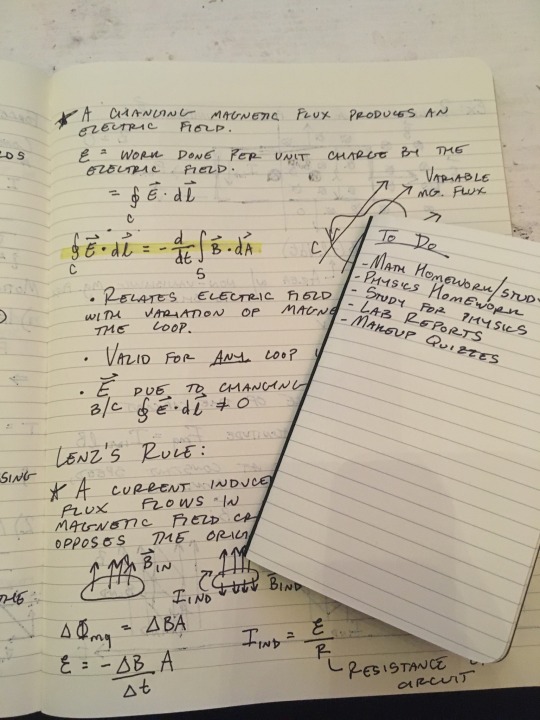 ★ A CHANGING MAGNETIC FLUX PRODUCES AN
ELECTRIC FIELD.
ε = WORK DONE PER UNIT CHARGE BY THE
ELECTRIC FIELD.
= ∮_C E⃗ · dl⃗
VARIABLE
MG. FLUX
C
∮_C E⃗ · dl⃗ = - d/dt ∫_S B⃗ · dA⃗
• RELATES ELECTRIC FIELD
WITH VARIATION OF MAGNE
THE LOOP.
• VALID FOR ANY LOOP
• E⃗ DUE TO CHANGING
B/C ∮ E⃗ · dl⃗ ≠ 0
LENZ'S RULE:
★ A CURRENT INDUCE
FLUX FLOWS IN
MAGNETIC FIELD CR
OPPOSES THE ORIG
B⃗ IN
I IND
B IND
ΔΦ mg = ΔBA
ε = -ΔB/Δt A
I IND = ε/R
RESISTANCE
CIRCUIT
TO DO
- MATH HOMEWORK/STUDY
- PHYSICS HOMEWORK
- STUDY FOR PHYSICS
- LAB REPORTS
- MAKEUP QUIZZES
SING
THE